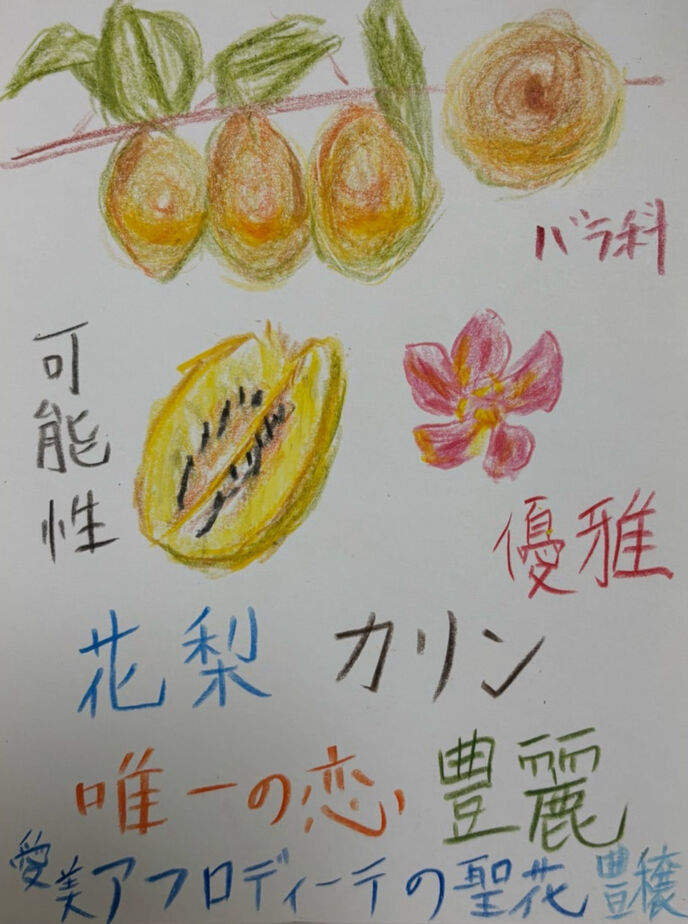 バラ科
可能性
優雅
花梨 カリン
唯一の恋 豊麗
愛美アフロディーテの聖花 豊穣